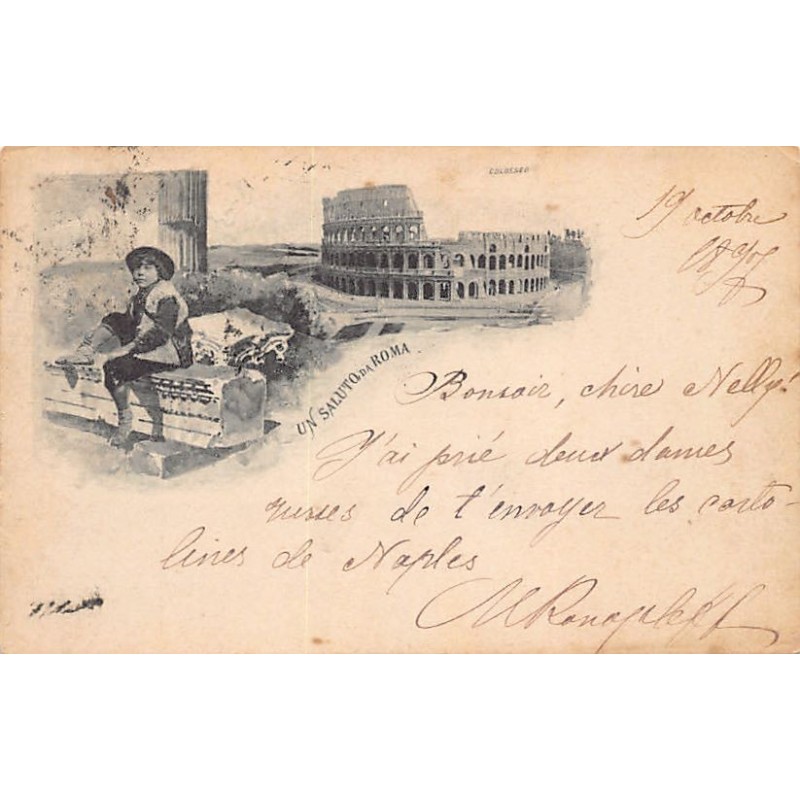 COLOSSEO
UN SALUTO DA ROMA
19 octobre
Bonsoir, chère Nelly!
J'ai prié deux dames
russes de t'envoyer les carto-
lines de Naples